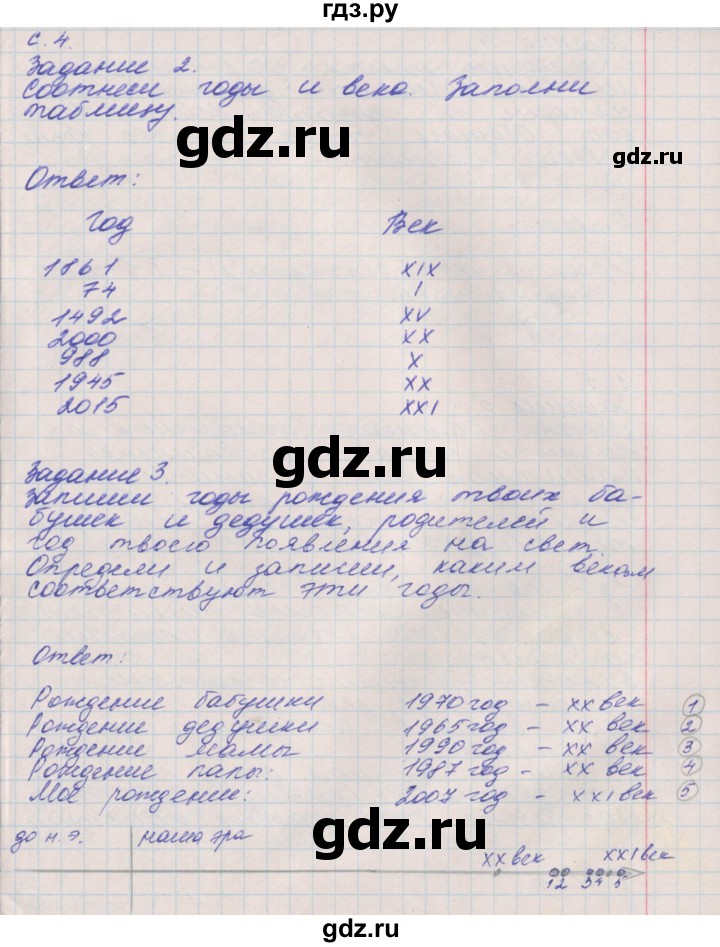 гдз.ру
с. 4.
Задание 2.
Соотнеси годы и века. Заполни
таблицу.
gdz.ru
gdz.ru
Ответ:
Год Век
1861 XIX
74 I
1492 XV
2000 XX
988 X
1945 XX
2015 XXI
gdz.ru
Задание 3
Запиши годы рождения твоих ба-
бушек и дедушек, родителей и
год твоего появления на свет.
Определи и запиши, каким векам
соответствуют эти годы.
Ответ:
gdz.ru
Рождение бабушки 1970 год - XX век 1
Рождение дедушки 1965 год - XX век 2
Рождение мамы 1990 год - XX век 3
Рождение папы: 1987 год - XX век 4
Моё рождение: 2007 год - XXI век 5
до н.э. наша эра
XX век XXI век
12 34 5
gdz.ru
gdz.ru